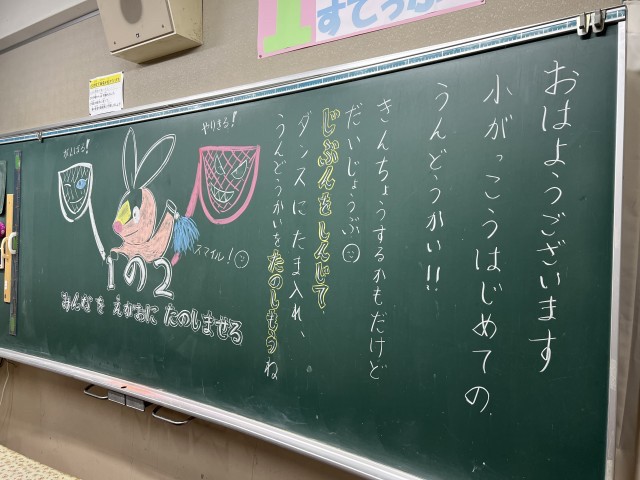 おはようございます
小がっこうはじめての
うんどうかい!!
きんちょうするかもだけど
だいじょうぶ
じぶんをしんじて
ダンスにたま入れ、
うんどうかいをたのしもうね
やりきる!
がんばる!
スマイル!
1の2
みんなを えがおに たのしませる